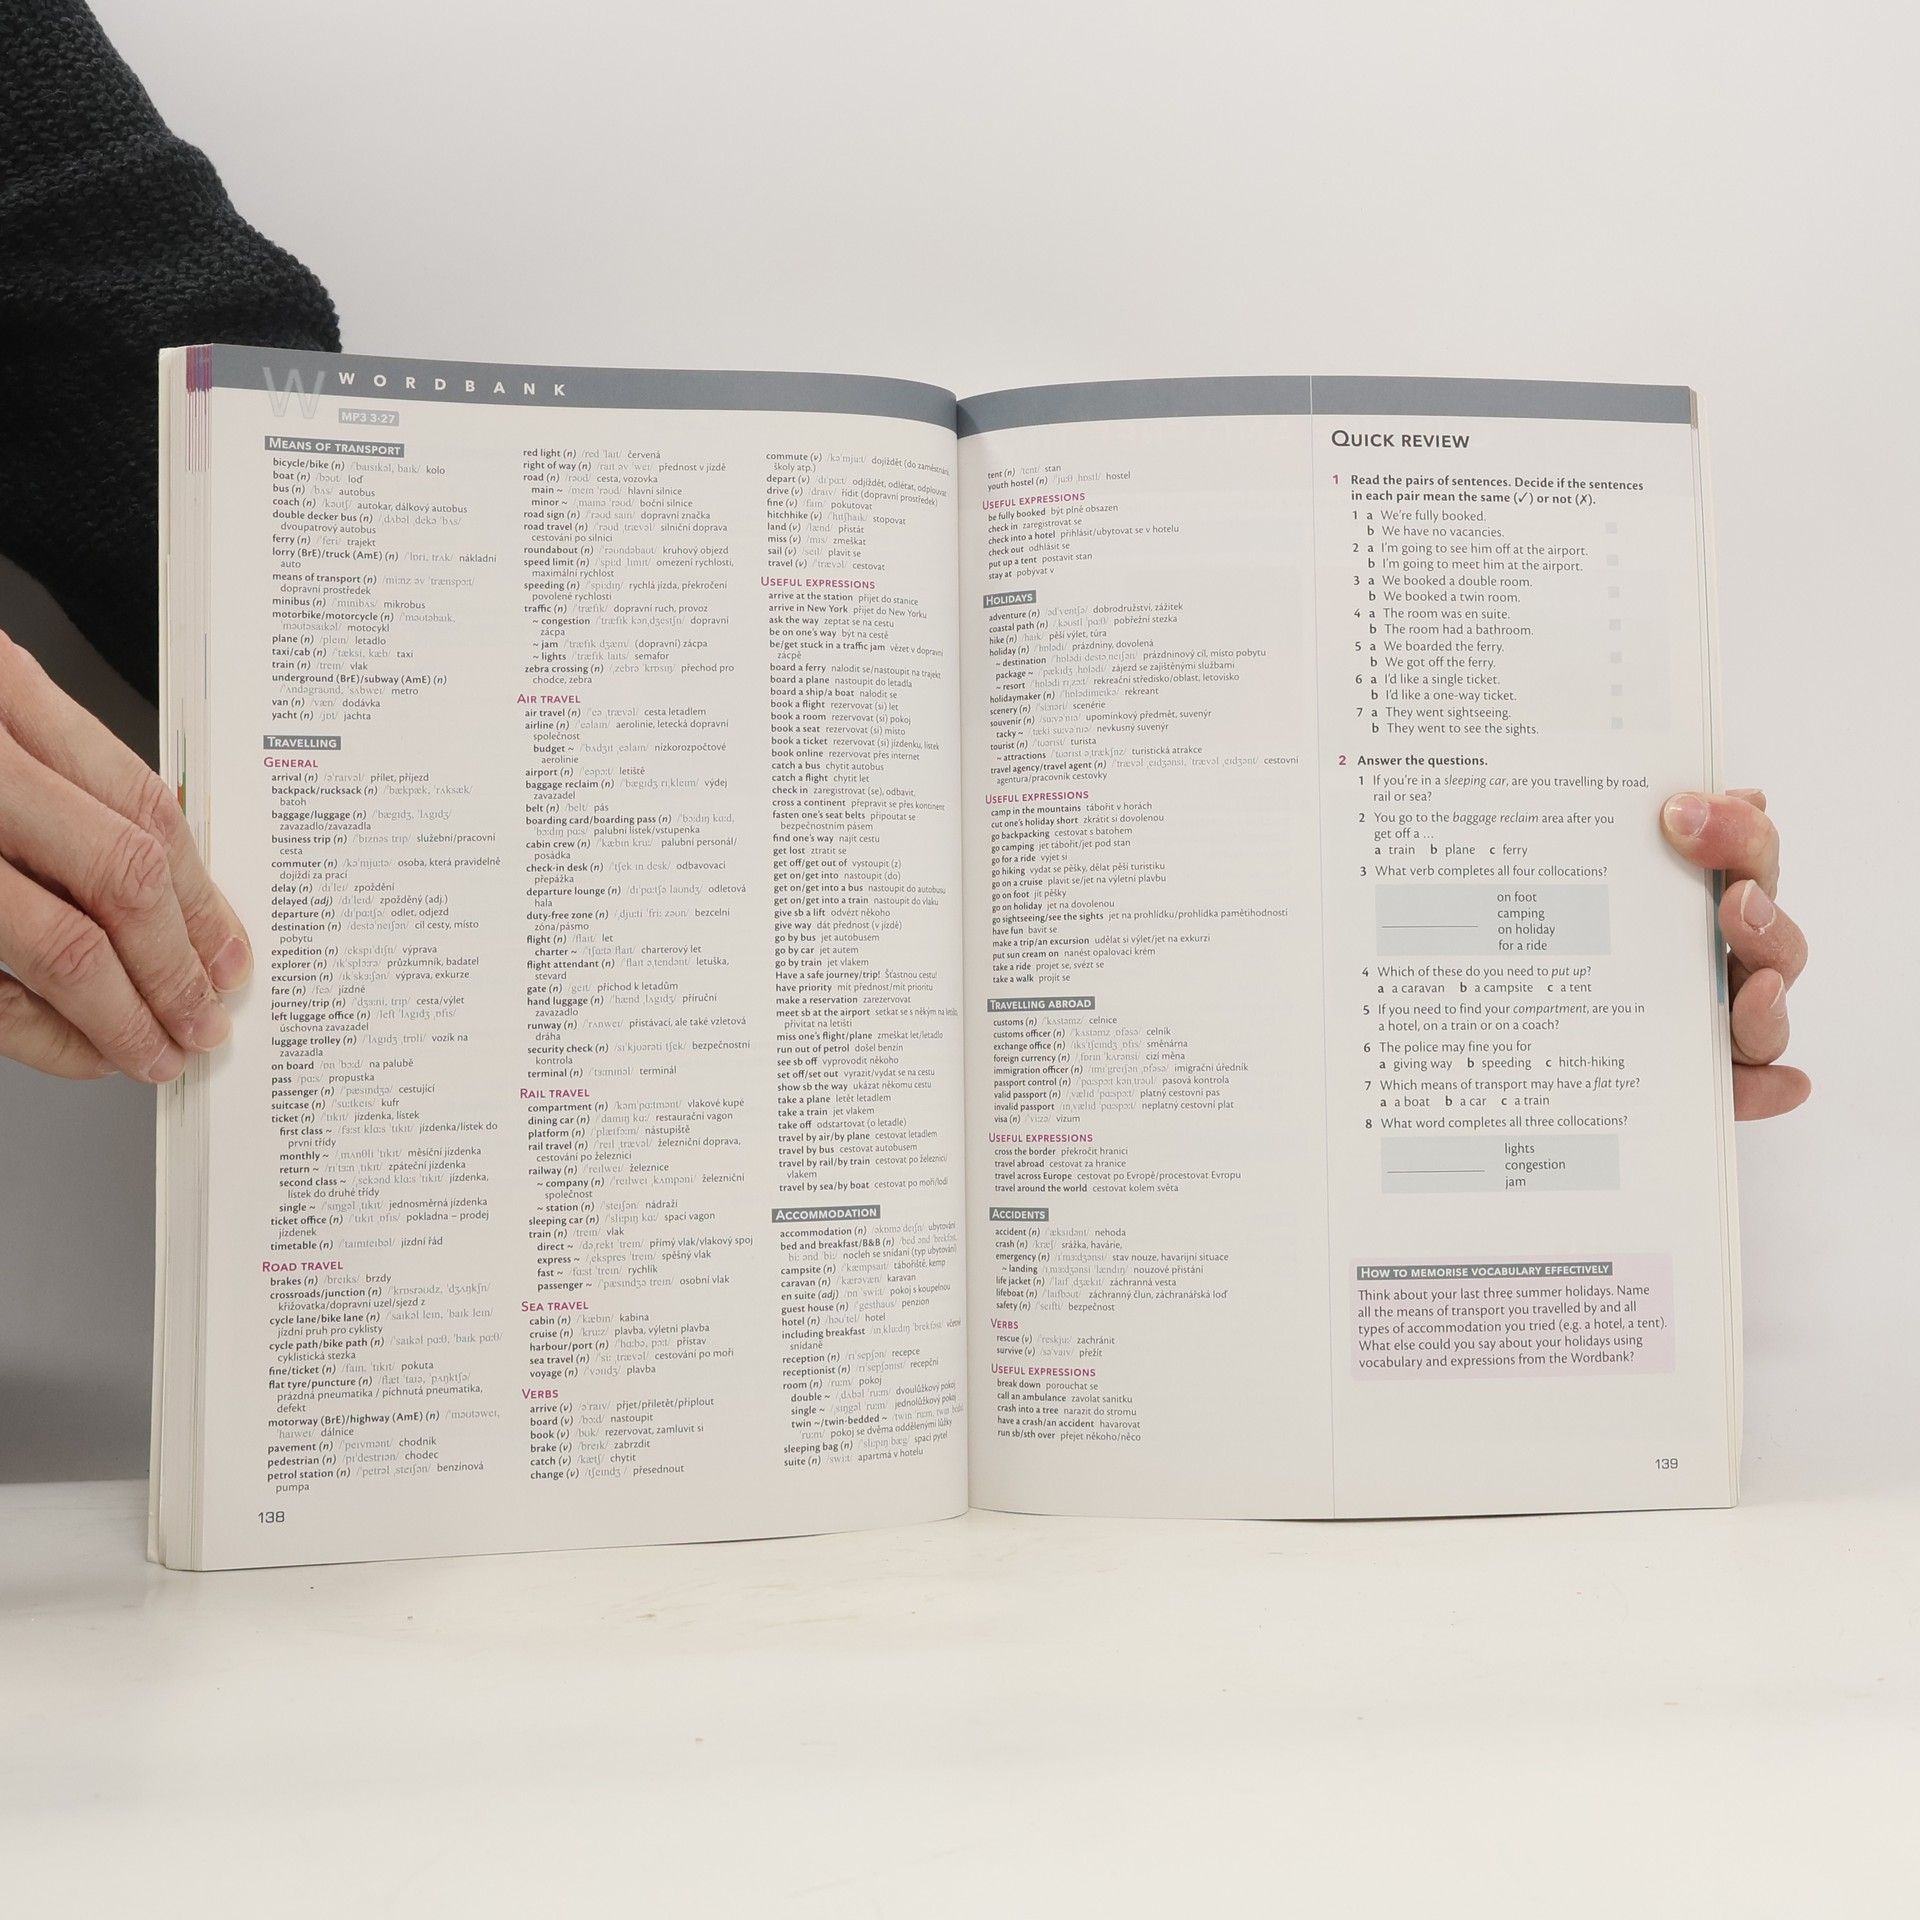 W WORDBANK
MP3 3·27
MEANS OF TRANSPORT
bicycle/bike (n) /ˈbaɪsɪkəl, baɪk/ kolo
boat (n) /bəʊt/ loď
bus (n) /bʌs/ autobus
coach (n) /kəʊtʃ/ autokar, dálkový autobus
double decker bus (n) /ˌdʌbəl dekə ˈbʌs/
dvoupatrový autobus
ferry (n) /ˈferi/ trajekt
lorry (BrE)/truck (AmE) (n) /ˈlɒri, trʌk/ nákladní
auto
means of transport (n) /miːnz əv ˈtrænspɔːt/
dopravní prostředek
minibus (n) /ˈmɪnibʌs/ mikrobus
motorbike/motorcycle (n) /ˈməʊtəbaɪk,
ˈməʊtəsaɪkəl/ motocykl
plane (n) /pleɪn/ letadlo
taxi/cab (n) /ˈtæksi, kæb/ taxi
train (n) /treɪn/ vlak
underground (BrE)/subway (AmE) (n)
/ˈʌndəgraʊnd, ˈsʌbweɪ/ metro
van (n) /væn/ dodávka
yacht (n) /jɒt/ jachta
TRAVELLING
GENERAL
arrival (n) /əˈraɪvəl/ přílet, příjezd
backpack/rucksack (n) /ˈbækpæk, ˈrʌksæk/
batoh
baggage/luggage (n) /ˈbægɪdʒ, ˈlʌgɪdʒ/
zavazadlo/zavazadla
business trip (n) /ˈbɪznəs trɪp/ služební/pracovní
cesta
commuter (n) /kəˈmjuːtə/ osoba, která pravidelně
dojíždí za prací
delay (n) /dɪˈleɪ/ zpoždění
delayed (adj) /dɪˈleɪd/ zpožděný (adj.)
departure (n) /dɪˈpɑːtʃə/ odlet, odjezd
destination (n) /ˌdestəˈneɪʃən/ cíl cesty, místo
pobytu
expedition (n) /ˌekspɪˈdɪʃn/ výprava
explorer (n) /ɪkˈsplɔːrə/ průzkumník, badatel
excursion (n) /ɪkˈskɜːʃən/ výprava, exkurze
fare (n) /feə/ jízdné
journey/trip (n) /ˈdʒɜːni, trɪp/ cesta/výlet
left luggage office (n) /left ˈlʌgɪdʒ ˌɒfɪs/
úschovna zavazadel
luggage trolley (n) /ˈlʌgɪdʒ ˌtrɒli/ vozík na
zavazadla
on board /ɒn ˈbɔːd/ na palubě
pass /pɑːs/ propustka
passenger (n) /ˈpæsɪndʒə/ cestující
suitcase (n) /ˈsuːtkeɪs/ kufr
ticket (n) /ˈtɪkɪt/ jízdenka, lístek
first class ~ /ˌfɜːst klɑːs ˈtɪkɪt/ jízdenka/lístek do
první třídy
monthly ~ /ˌmʌnθli ˈtɪkɪt/ měsíční jízdenka
return ~ /rɪˈtɜːn ˌtɪkɪt/ zpáteční jízdenka
second class ~ /ˌsekənd klɑːs ˈtɪkɪt/ jízdenka,
lístek do druhé třídy
single ~ /ˈsɪŋgəl ˌtɪkɪt/ jednosměrná jízdenka
ticket office (n) /ˈtɪkɪt ˌɒfɪs/ pokladna – prodej
jízdenek
timetable (n) /ˈtaɪmteɪbəl/ jízdní řád
ROAD TRAVEL
brakes (n) /breɪks/ brzdy
crossroads/junction (n) /ˈkrɒsrəʊdz, ˈdʒʌŋkʃn/
křižovatka/dopravní uzel/sjezd z
cycle lane/bike lane (n) /ˈsaɪkəl leɪn, ˈbaɪk leɪn/
jízdní pruh pro cyklisty
cycle path/bike path (n) /ˈsaɪkəl pɑːθ, ˈbaɪk pɑːθ/
cyklistická stezka
fine/ticket (n) /faɪn, ˈtɪkɪt/ pokuta
flat tyre/puncture (n) /flæt ˈtaɪə, ˈpʌŋktʃə/
prázdná pneumatika / píchnutá pneumatika,
defekt
motorway (BrE)/highway (AmE) (n) /ˈməʊtəweɪ,
ˈhaɪweɪ/ dálnice
pavement (n) /ˈpeɪvmənt/ chodník
pedestrian (n) /pɪˈdestriən/ chodec
petrol station (n) /ˈpetrəl ˌsteɪʃən/ benzinová
pumpa
138
red light (n) /red ˈlaɪt/ červená
right of way (n) /raɪt əv ˈweɪ/ přednost v jízdě
road (n) /rəʊd/ cesta, vozovka
main ~ /meɪn ˈrəʊd/ hlavní silnice
minor ~ /ˌmaɪnə ˈrəʊd/ boční silnice
road sign (n) /ˈrəʊd saɪn/ dopravní značka
road travel (n) /ˈrəʊd ˌtrævəl/ silniční doprava
cestování po silnici
roundabout (n) /ˈraʊndəbaʊt/ kruhový objezd
speed limit (n) /ˈspiːd ˌlɪmɪt/ omezení rychlosti,
maximální rychlost
speeding (n) /ˈspiːdɪŋ/ rychlá jízda, překročení
povolené rychlosti
traffic (n) /ˈtræfɪk/ dopravní ruch, provoz
~ congestion /ˈtræfɪk kənˌdʒestʃn/ dopravní
zácpa
~ jam /ˈtræfɪk dʒæm/ (dopravní) zácpa
~ lights /ˈtræfɪk laɪts/ semafor
zebra crossing (n) /ˌzebrə ˈkrɒsɪŋ/ přechod pro
chodce, zebra
AIR TRAVEL
air travel (n) /ˈeə ˌtrævəl/ cesta letadlem
airline (n) /ˈeəlaɪn/ aerolinie, letecká dopravní
společnost
budget ~ /ˈbʌdʒɪt ˌeəlaɪn/ nízkorozpočtové
aerolinie
airport (n) /ˈeəpɔːt/ letiště
baggage reclaim (n) /ˈbægɪdʒ rɪˌkleɪm/ výdej
zavazadel
belt (n) /belt/ pás
boarding card/boarding pass (n) /ˈbɔːdɪŋ kɑːd,
ˈbɔːdɪŋ pɑːs/ palubní lístek/vstupenka
cabin crew (n) /ˈkæbɪn kruː/ palubní personál/
posádka
check-in desk (n) /ˈtʃek ɪn desk/ odbavovací
přepážka
departure lounge (n) /dɪˈpɑːtʃə laʊndʒ/ odletová
hala
duty-free zone (n) /ˌdjuːti ˈfriː zəʊn/ bezcelní
zóna/pásmo
flight (n) /flaɪt/ let
charter ~ /ˈtʃɑːtə flaɪt/ charterový let
flight attendant (n) /ˈflaɪt əˌtendənt/ letuška,
stevard
gate (n) /geɪt/ příchod k letadlům
hand luggage (n) /ˈhænd ˌlʌgɪdʒ/ příruční
zavazadlo
runway (n) /ˈrʌnweɪ/ přistávací, ale také vzletová
dráha
security check (n) /sɪˈkjʊərəti tʃek/ bezpečnostní
kontrola
terminal (n) /ˈtɜːmɪnəl/ terminál
RAIL TRAVEL
compartment (n) /kəmˈpɑːtmənt/ vlakové kupé
dining car (n) /ˈdaɪnɪŋ kɑː/ restaurační vagon
platform (n) /ˈplætfɔːm/ nástupiště
rail travel (n) /ˈreɪl ˌtrævəl/ železniční doprava,
cestování po železnici
railway (n) /ˈreɪlweɪ/ železnice
~ company (n) /ˈreɪlweɪ ˌkʌmpəni/ železniční
společnost
~ station (n) /ˈsteɪʃən/ nádraží
sleeping car (n) /ˈsliːpɪŋ kɑː/ spací vagon
train (n) /treɪn/ vlak
direct ~ /dəˌrekt ˈtreɪn/ přímý vlak/vlakový spoj
express ~ /ˌekspres ˈtreɪn/ spěšný vlak
fast ~ /fɑːst ˈtreɪn/ rychlík
passenger ~ /ˈpæsɪndʒə treɪn/ osobní vlak
SEA TRAVEL
cabin (n) /ˈkæbɪn/ kabina
cruise (n) /kruːz/ plavba, výletní plavba
harbour/port (n) /ˈhɑːbə, pɔːt/ přístav
sea travel (n) /ˈsiː ˌtrævəl/ cestování po moři
voyage (n) /ˈvɔɪɪdʒ/ plavba
VERBS
arrive (v) /əˈraɪv/ přijet/přiletět/připlout
board (v) /bɔːd/ nastoupit
book (v) /bʊk/ rezervovat, zamluvit si
brake (v) /breɪk/ zabrzdit
catch (v) /kætʃ/ chytit
change (v) /tʃeɪndʒ/ přesednout
commute (v) /kəˈmjuːt/ dojíždět (do zaměstnání,
školy atp.)
depart (v) /dɪˈpɑːt/ odjíždět, odlétat, odplouvat
drive (v) /draɪv/ řídit (dopravní prostředek)
fine (v) /faɪn/ pokutovat
hitchhike (v) /ˈhɪtʃhaɪk/ stopovat
land (v) /lænd/ přistát
miss (v) /mɪs/ zmeškat
sail (v) /seɪl/ plavit se
travel (v) /ˈtrævəl/ cestovat
USEFUL EXPRESSIONS
arrive at the station přijet do stanice
arrive in New York přijet do New Yorku
ask the way zeptat se na cestu
be on one's way být na cestě
be/get stuck in a traffic jam vězet v dopravní
zácpě
board a ferry nalodit se/nastoupit na trajekt
board a plane nastoupit do letadla
board a ship/a boat nalodit se
book a flight rezervovat (si) let
book a room rezervovat (si) pokoj
book a seat rezervovat (si) místo
book a ticket rezervovat (si) jízdenku, lístek
book online rezervovat přes internet
catch a bus chytit autobus
catch a flight chytit let
check in zaregistrovat (se), odbavit,
cross a continent přepravit se přes kontinent
fasten one's seat belts připoutat se
bezpečnostním pásem
find one's way najít cestu
get lost ztratit se
get off/get out of vystoupit (z)
get on/get into nastoupit (do)
get on/get into a bus nastoupit do autobusu
get on/get into a train nastoupit do vlaku
give sb a lift odvézt někoho
give way dát přednost (v jízdě)
go by bus jet autobusem
go by car jet autem
go by train jet vlakem
Have a safe journey/trip! Šťastnou cestu!
have priority mít přednost/mít prioritu
make a reservation zarezervovat
meet sb at the airport setkat se s někým na letišti,
přivítat na letišti
miss one's flight/plane zmeškat let/letadlo
run out of petrol došel benzin
see sb off vyprovodit někoho
set off/set out vyrazit/vydat se na cestu
show sb the way ukázat někomu cestu
take a plane letět letadlem
take a train jet vlakem
take off odstartovat (o letadle)
travel by air/by plane cestovat letadlem
travel by bus cestovat autobusem
travel by rail/by train cestovat po železnici/
vlakem
travel by sea/by boat cestovat po moři/lodí
ACCOMMODATION
accommodation (n) /əkɒməˈdeɪʃn/ ubytování
bed and breakfast/B&B (n) /bed ənd ˈbrekfəst,
biː ənd ˈbiː/ nocleh se snídaní (typ ubytování)
campsite (n) /ˈkæmpsaɪt/ tábořiště, kemp
caravan (n) /ˈkærəvæn/ karavan
en suite (adj) /ɒn ˈswiːt/ pokoj s koupelnou
guest house (n) /ˈgesthaʊs/ penzion
hotel (n) /həʊˈtel/ hotel
including breakfast /ɪnˌkluːdɪŋ ˈbrekfəst/ včetně
snídaně
reception (n) /rɪˈsepʃən/ recepce
receptionist (n) /rɪˈsepʃənɪst/ recepční
room (n) /ruːm/ pokoj
double ~ /ˌdʌbəl ˈruːm/ dvoulůžkový pokoj
single ~ /ˌsɪŋgəl ˈruːm/ jednolůžkový pokoj
twin ~/twin-bedded ~ /twɪn ˈruːm, twɪn bedɪd
ˈruːm/ pokoj se dvěma oddělenými lůžky
sleeping bag (n) /ˈsliːpɪŋ bæg/ spací pytel
suite (n) /swiːt/ apartmá v hotelu
tent (n) /tent/ stan
youth hostel (n) /ˈjuːθ ˌhɒstl/ hostel
USEFUL EXPRESSIONS
be fully booked být plně obsazen
check in zaregistrovat se
check into a hotel přihlásit/ubytovat se v hotelu
check out odhlásit se
put up a tent postavit stan
stay at pobývat v
HOLIDAYS
adventure (n) /ədˈventʃə/ dobrodružství, zážitek
coastal path (n) /ˌkəʊstl ˈpɑːθ/ pobřežní stezka
hike (n) /haɪk/ pěší výlet, túra
holiday (n) /ˈhɒlədi/ prázdniny, dovolená
~ destination /ˈhɒlədi destəˌneɪʃən/ prázdninový cíl, místo pobytu
package ~ /ˈpækɪdʒ ˌhɒlədi/ zájezd se zajištěnými službami
~ resort /ˈhɒlədi rɪˌzɔːt/ rekreační středisko/oblast, letovisko
holidaymaker (n) /ˈhɒlədimeɪkə/ rekreant
scenery (n) /ˈsiːnəri/ scenérie
souvenir (n) /ˌsuːvəˈnɪə/ upomínkový předmět, suvenýr
tacky ~ /ˌtæki suːvəˈnɪə/ nevkusný suvenýr
tourist (n) /ˈtʊərɪst/ turista
~ attractions /ˈtʊərɪst əˌtrækʃnz/ turistická atrakce
travel agency/travel agent (n) /ˈtrævəl ˌeɪdʒənsi, ˈtrævəl ˌeɪdʒənt/ cestovní
agentura/pracovník cestovky
USEFUL EXPRESSIONS
camp in the mountains tábořit v horách
cut one's holiday short zkrátit si dovolenou
go backpacking cestovat s batohem
go camping jet tábořit/jet pod stan
go for a ride vyjet si
go hiking vydat se pěšky, dělat pěší turistiku
go on a cruise plavit se/jet na výletní plavbu
go on foot jít pěšky
go on holiday jet na dovolenou
go sightseeing/see the sights jet na prohlídku/prohlídka pamětihodností
have fun bavit se
make a trip/an excursion udělat si výlet/jet na exkurzi
put sun cream on nanést opalovací krém
take a ride projet se, svézt se
take a walk projít se
TRAVELLING ABROAD
customs (n) /ˈkʌstəmz/ celnice
customs officer (n) /ˈkʌstəmz ˌɒfəsə/ celník
exchange office (n) /ɪksˈtʃeɪndʒ ˌɒfɪs/ směnárna
foreign currency (n) /ˌfɒrɪn ˈkʌrənsi/ cizí měna
immigration officer (n) /ˌɪmɪˈgreɪʃən ˌɒfəsə/ imigrační úředník
passport control (n) /ˈpɑːspɔːt kənˌtrəʊl/ pasová kontrola
valid passport (n) /ˌvælɪd ˈpɑːspɔːt/ platný cestovní pas
invalid passport /ɪnˌvælɪd ˈpɑːspɔːt/ neplatný cestovní plat
visa (n) /ˈviːzə/ vízum
USEFUL EXPRESSIONS
cross the border překročit hranici
travel abroad cestovat za hranice
travel across Europe cestovat po Evropě/procestovat Evropu
travel around the world cestovat kolem světa
ACCIDENTS
accident (n) /ˈæksɪdənt/ nehoda
crash (n) /kræʃ/ srážka, havárie,
emergency (n) /ɪˈmɜːdʒənsi/ stav nouze, havarijní situace
~ landing /ɪˌmɜːdʒənsi ˈlændɪŋ/ nouzové přistání
life jacket (n) /ˈlaɪf ˌdʒækɪt/ záchranná vesta
lifeboat (n) /ˈlaɪfbəʊt/ záchranný člun, záchranářská loď
safety (n) /ˈseɪfti/ bezpečnost
VERBS
rescue (v) /ˈreskjuː/ zachránit
survive (v) /səˈvaɪv/ přežít
USEFUL EXPRESSIONS
break down porouchat se
call an ambulance zavolat sanitku
crash into a tree narazit do stromu
have a crash/an accident havarovat
run sb/sth over přejet někoho/něco
QUICK REVIEW
1 Read the pairs of sentences. Decide if the sentences
in each pair mean the same (✓) or not (✗).
1 a We're fully booked.
b We have no vacancies.
2 a I'm going to see him off at the airport.
b I'm going to meet him at the airport.
3 a We booked a double room.
b We booked a twin room.
4 a The room was en suite.
b The room had a bathroom.
5 a We boarded the ferry.
b We got off the ferry.
6 a I'd like a single ticket.
b I'd like a one-way ticket.
7 a They went sightseeing.
b They went to see the sights.
2 Answer the questions.
1 If you're in a sleeping car, are you travelling by road,
rail or sea?
2 You go to the baggage reclaim area after you
get off a ...
a train b plane c ferry
3 What verb completes all four collocations?
on foot
camping
on holiday
for a ride
4 Which of these do you need to put up?
a a caravan b a campsite c a tent
5 If you need to find your compartment, are you in
a hotel, on a train or on a coach?
6 The police may fine you for
a giving way b speeding c hitch-hiking
7 Which means of transport may have a flat tyre?
a a boat b a car c a train
8 What word completes all three collocations?
lights
congestion
jam
HOW TO MEMORISE VOCABULARY EFFECTIVELY
Think about your last three summer holidays. Name
all the means of transport you travelled by and all
types of accommodation you tried (e.g. a hotel, a tent).
What else could you say about your holidays using
vocabulary and expressions from the Wordbank?
139